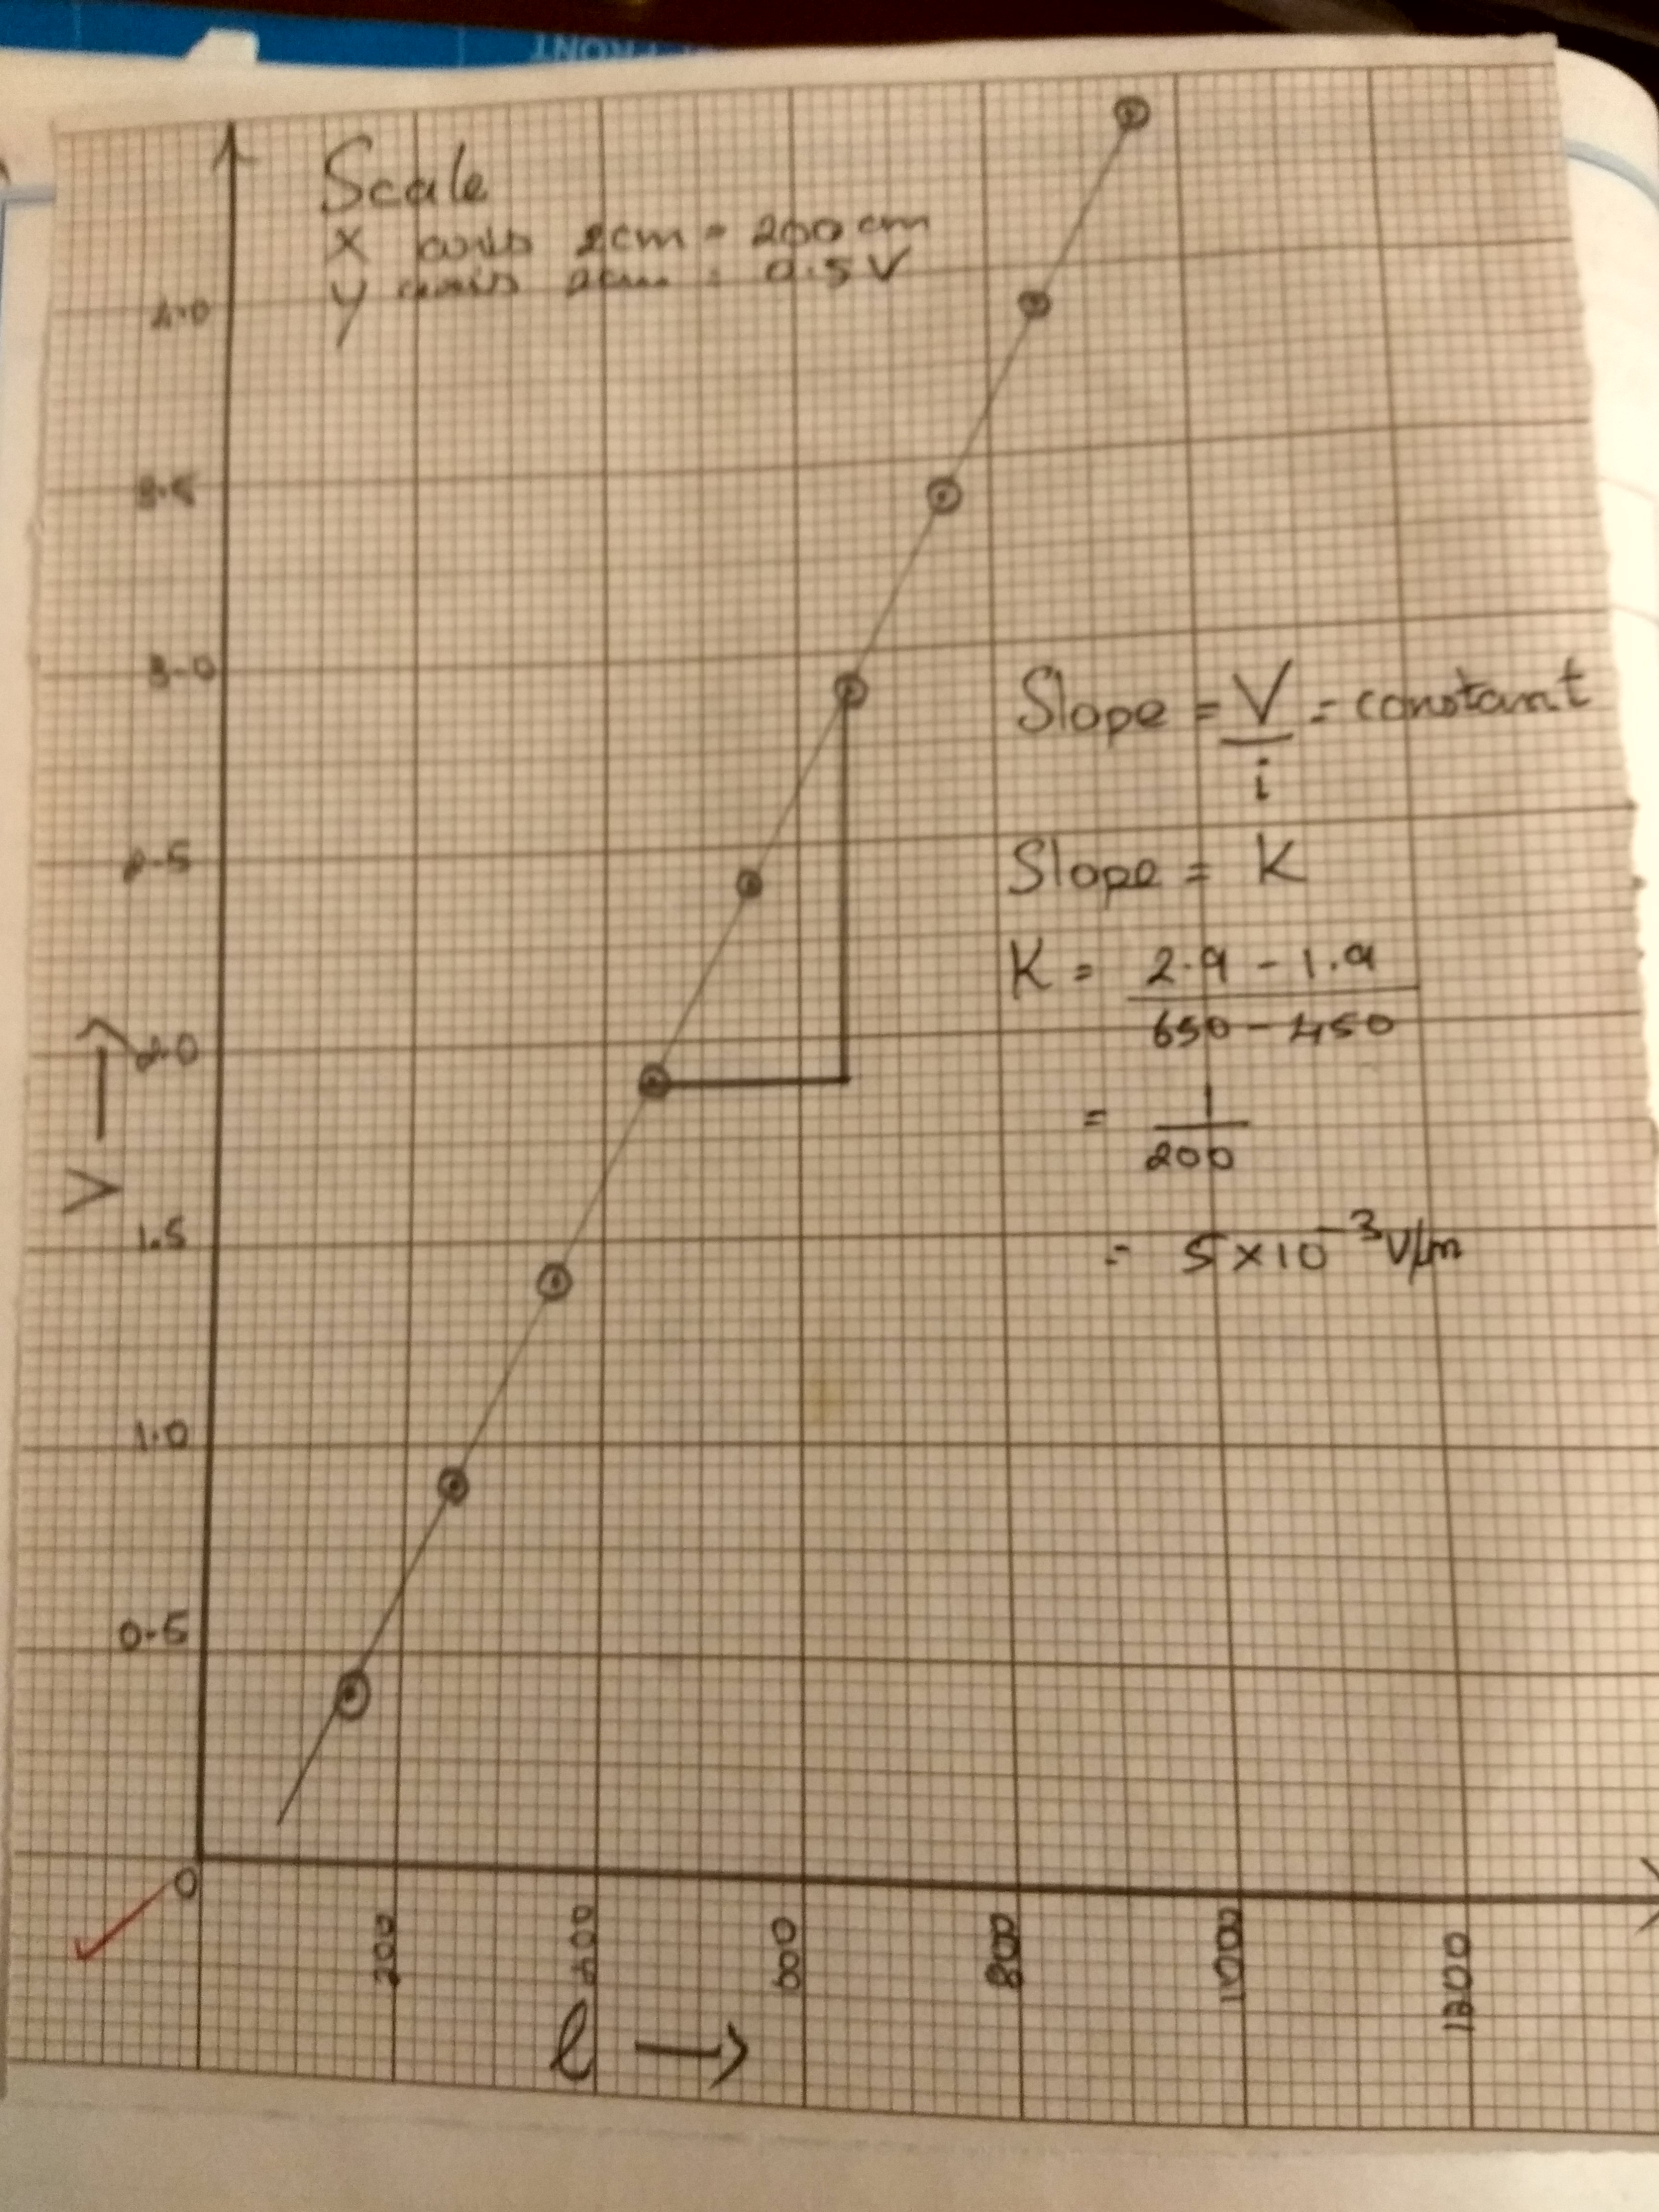 Scale
X axis 2cm = 200 cm
Y axis 2cm = 0.5 V
4.0
3.5
3.0
2.5
2.0
1.5
1.0
0.5
0
V
Slope = V/i = constant
Slope = K
K = 2.9 - 1.9
650 - 450
= 1
200
= 5 x 10⁻³ V/m
200
400
600
800
1000
1200
l